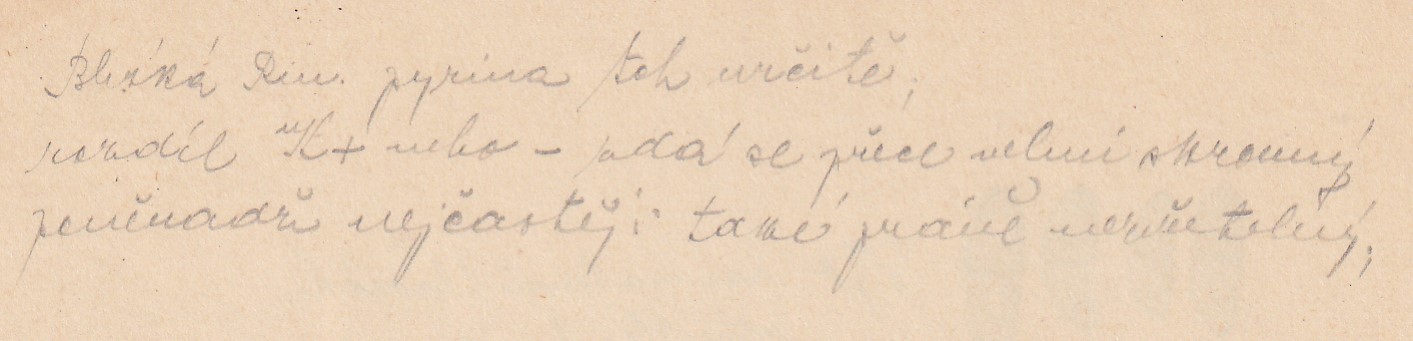 Blízká Rin. pyrina toh určitě,
rozdíl K+ nebo - zdá se přece velmi skromný
nejčastěji také právě nezřetelný;